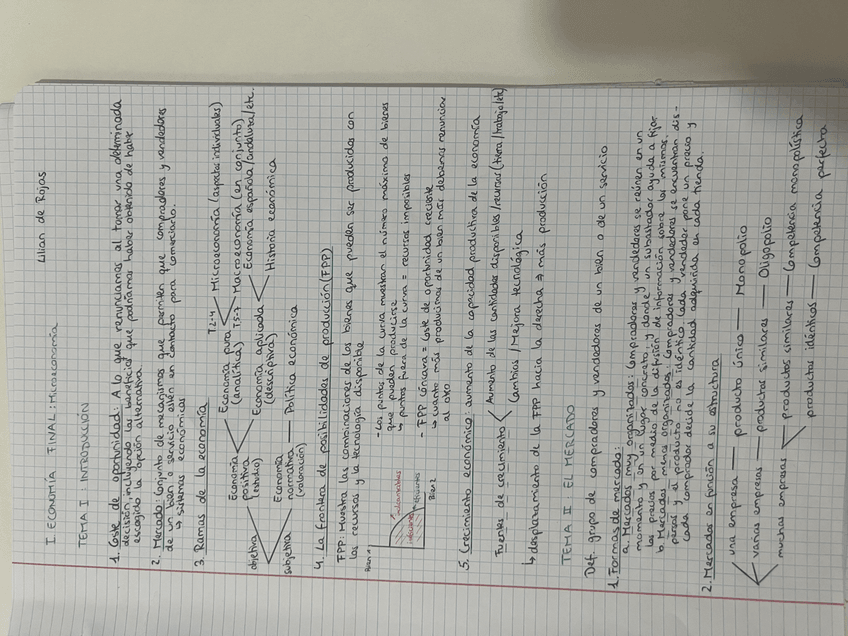 I. ECONOMÍA FINAL: Microeconomía
Lilian de Rojas
TEMA I INTRODUCCIÓN
1. Coste de oportunidad: A lo que renunciamos al tomar una determinada
decisión, incluyendo los beneficios que podríamos haber obtenido de haber
escogido la opción alternativa.
2. Mercado: Conjunto de mecanismos que permiten que compradores y vendedores
de un bien o servicio estén en contacto para comerciarlo.
↳ sistemas económicos
3. Ramas de la economía
objetiva
Economía positiva (estudio)
Economía pura (analítica)
T2-4 Microeconomía (aspectos individuales)
T5-7 Macroeconomía (en conjunto)
Economía aplicada (descriptiva)
Economía española/andaluza/etc.
Historia económica
subjetiva
Economía normativa (valoración)
Política económica
4. La frontera de posibilidades de producción (FPP)
FPP: Muestra las combinaciones de los bienes que pueden ser producidos con
los recursos y la tecnología disponible
Bien 1
inalcanzables
eficientes
Bien 2
- Los puntos de la curva muestran el número máximo de bienes
que pueden producirse
↳ puntos fuera de la curva = recursos imposibles
- FPP cóncava = coste de oportunidad creciente
↳ cuanto más producimos de un bien más debemos renunciar
al otro
5. Crecimiento económico: aumento de la capacidad productiva de la economía
Fuentes de crecimiento
Aumento de las cantidades disponibles/recursos (tierra/trabajo/etc)
Cambios/Mejora tecnológica
↳ desplazamiento de la FPP hacia la derecha → más producción
TEMA II EL MERCADO
Def. grupo de compradores y vendedores de un bien o de un servicio
1. Formas de mercado:
a. Mercados muy organizados: compradores y vendedores se reúnen en un
momento y en un lugar concreto, y donde un subastador ayuda a fijar
los precios por medio de la difusión de información sobre los mismos.
b. Mercados menos organizados: compradores y vendedores se encuentran dis-
persos y el producto no es idéntico. Cada vendedor pone un precio y
cada comprador decide la cantidad adquirida en cada tienda.
2. Mercados en función a su estructura
una empresa — producto único — Monopolio
varias empresas — productos similares — Oligopolio
muchas empresas
productos similares — Competencia monopolística
productos idénticos — Competencia perfecta